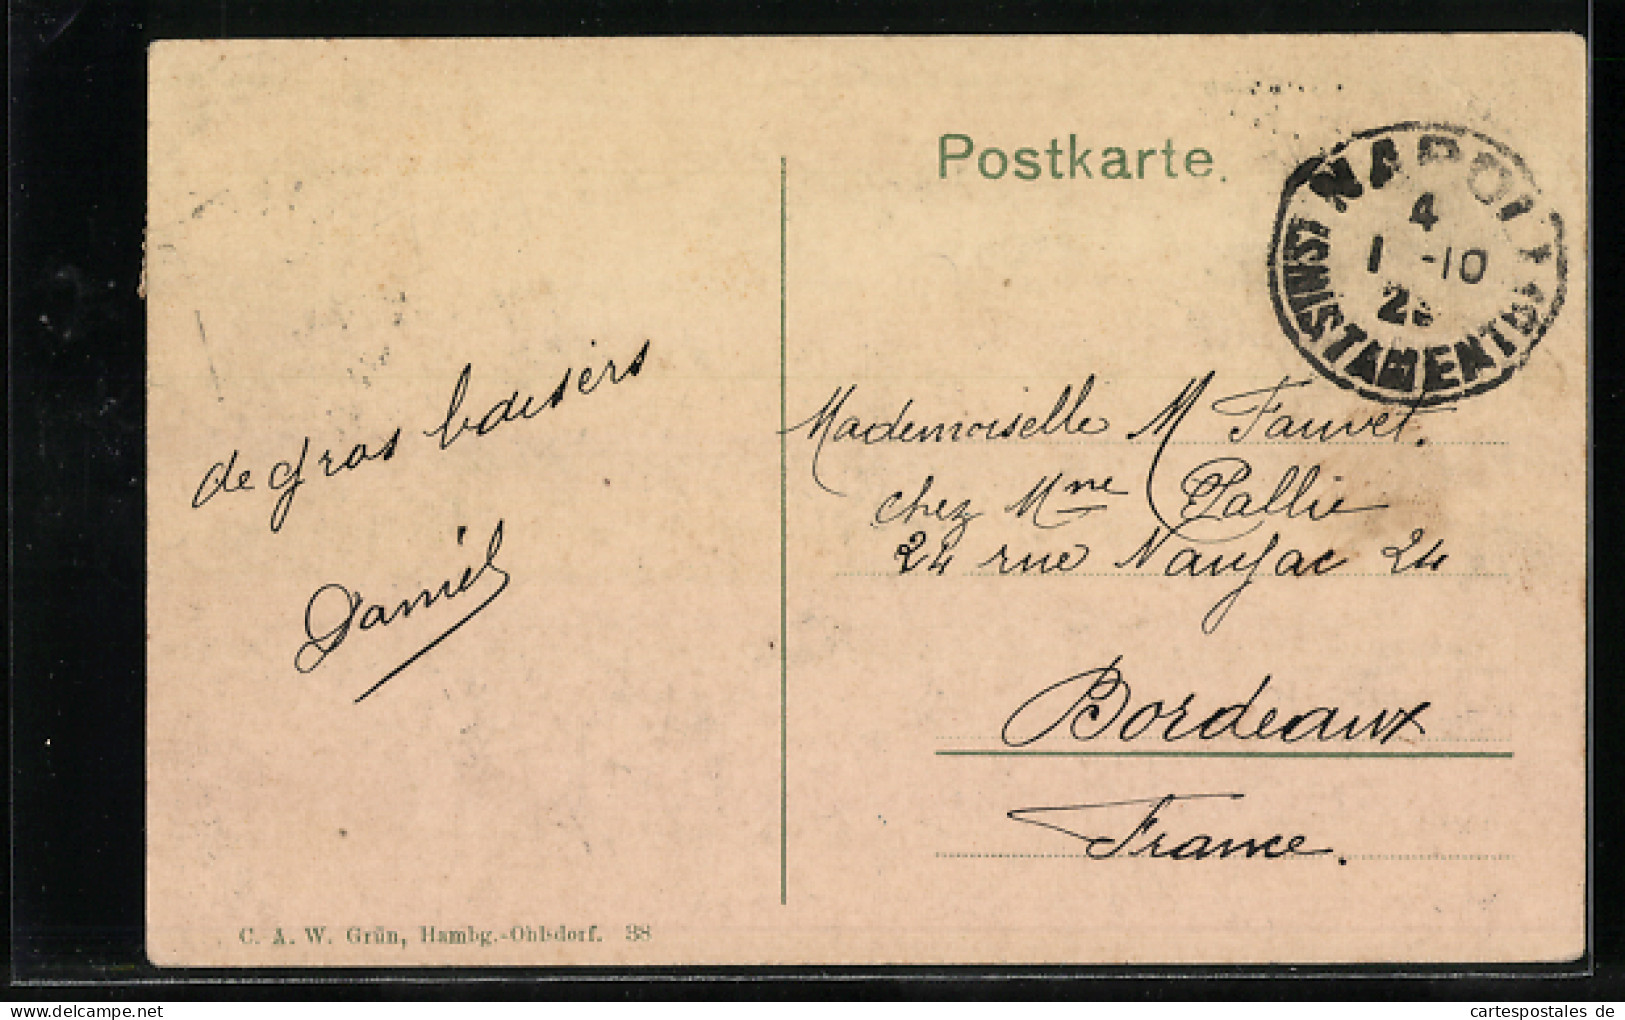 Postkarte.
NAPOLI
4
1 -10
2
de gros baisers
Daniel
Mademoiselle M Fauvet.
chez Mme Pallie
24 rue Naujac 24
Bordeaux
France.
C. A. W. Grün, Hambg.-Ohlsdorf. 38
cartespostales de